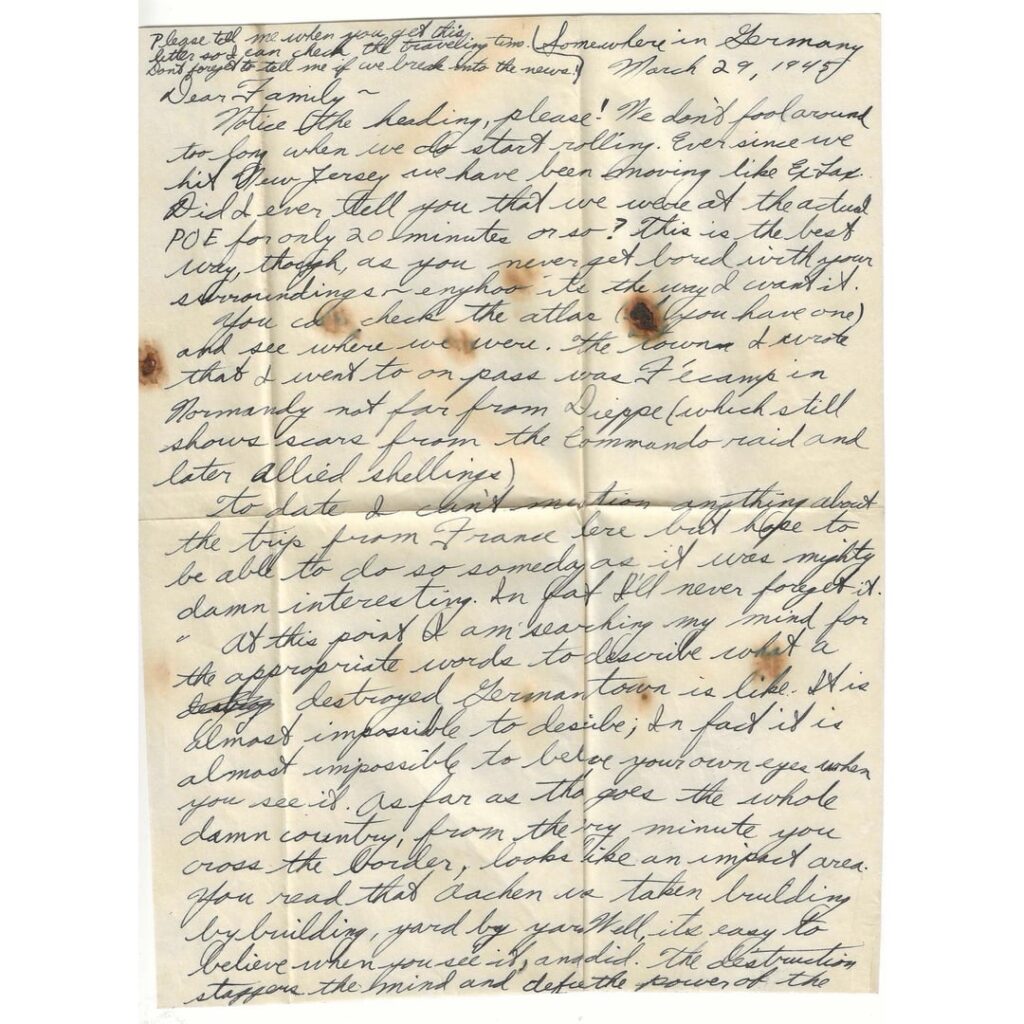 Please tell me when you get this
letter so I can check the traveling time.
Don't forget to tell me if we break into the news!
Somewhere in Germany
March 29, 1945
Dear Family ~
Notice the heading, please! We don't fool around
too long when we do start rolling. Ever since we
hit New Jersey we have been moving like Ex Lax.
Did I ever tell you that we were at the actual
POE for only 20 minutes or so? This is the best
way, though, as you never get bored with your
surroundings ~ enyhoo it's the way I want it.
You can check the atlas ( you have one)
and see where we were. The town I wrote
that I went to on pass was Fécamp in
Normandy not far from Dieppe (which still
shows scars from the Commando raid and
later allied shellings)
To date I can't mention anything about
the trip from France here but hope to
be able to do so someday as it was mighty
damn interesting. In fat I'll never forget it.
" At this point I am searching my mind for
the appropriate words to describe what a
destroyed German town is like. It is
almost impossible to desibe; In fact it is
almost impossible to belve your own eyes when
you see it. As far as tha goes the whole
damn country, from the ry minute you
cross the border, looks like an impact area.
You read that Aachen is taken building
by building, yard by yar Well, its easy to
believe when you see it, and did. The destruction
staggers the mind and defie the power of the